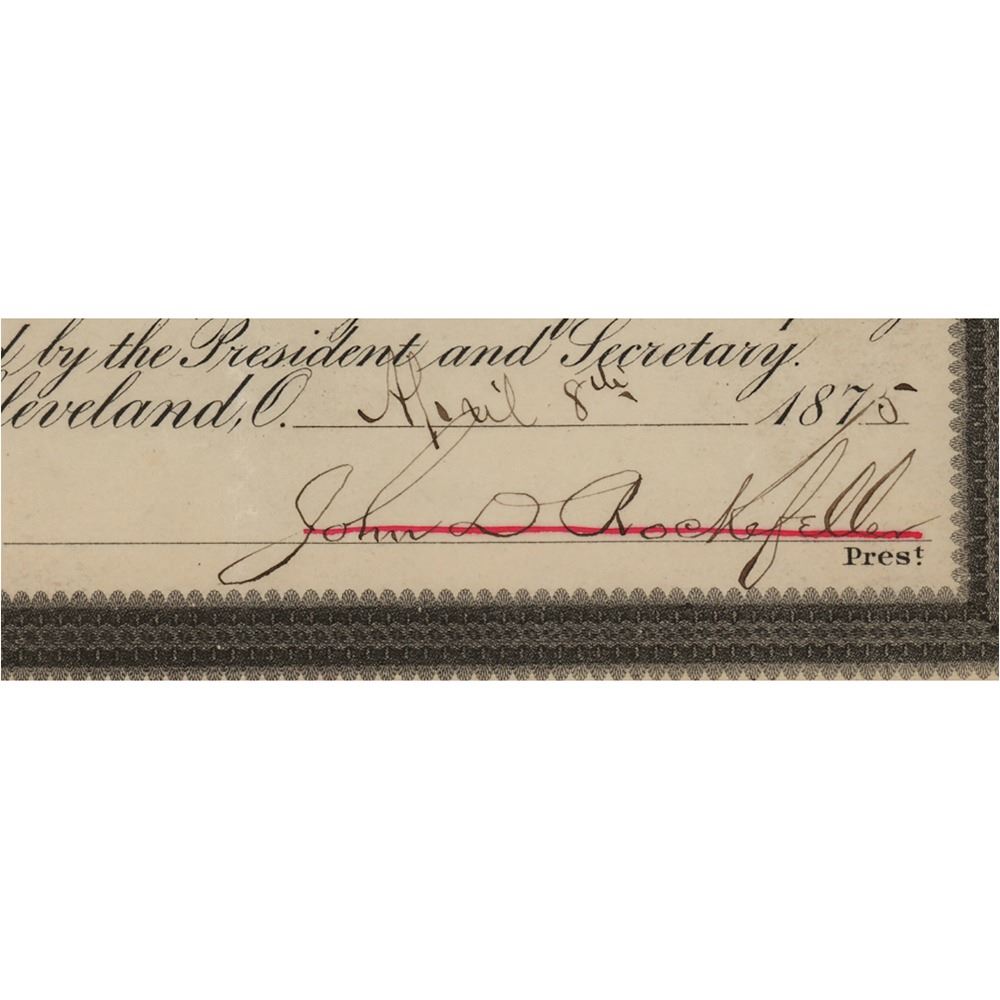 by the President and Secretary.
leveland, O. April 8th 1875
John D Rockefeller
Prest